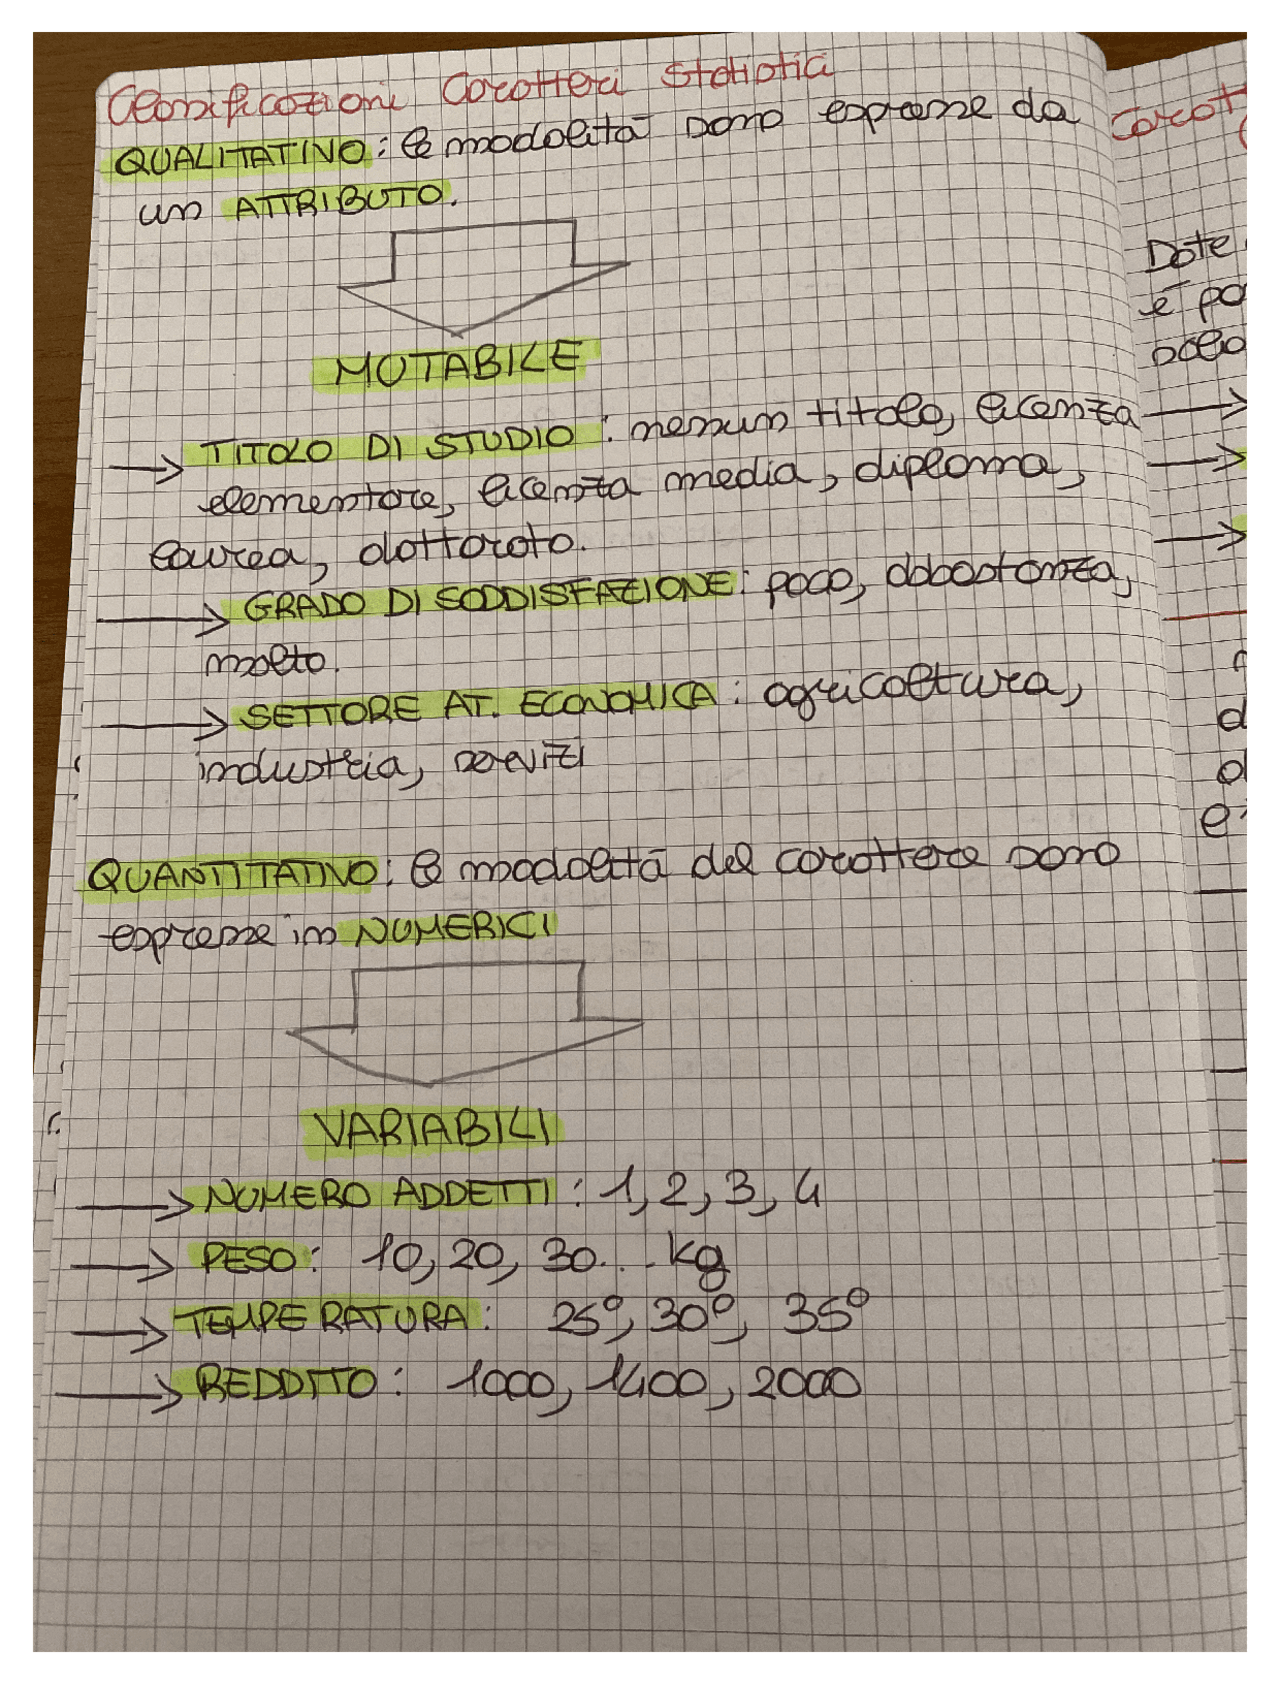 Classificazioni Caratteri Statistici
QUALITATIVO: le modalità sono espresse da
un ATTRIBUTO.
MUTABILE
→ TITOLO DI STUDIO: nessun titolo, licenza
elementare, licenza media, diploma,
laurea, dottorato.
→ GRADO DI SODDISFAZIONE: poco, abbastanza,
molto.
→ SETTORE AT. ECONOMICA: agricoltura,
industria, servizi
QUANTITATIVO: le modalità del carattere sono
espresse in NUMERICI
VARIABILI
→ NUMERO ADDETTI: 1, 2, 3, 4
→ PESO: 10, 20, 30... kg
→ TEMPERATURA: 25°, 30°, 35°
→ REDDITO: 1000, 1400, 2000
Caratt
Date
è po